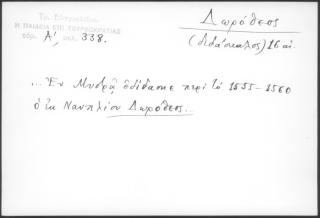 Τρ. Ευαγγελίδου
Η ΠΑΙΔΕΙΑ ΕΠΙ ΤΟΥΡΚΟΚΡΑΤΙΑΣ
τόμ. Α', σελ. 338.
Δωρόθεος
(διδάσκαλος) 16 αι.
... Ἐν Μυδρᾷ ἐδίδασκε περὶ τὸ 1555-1560
ὁ ἐκ Ναυπλίου Δωρόθεος...